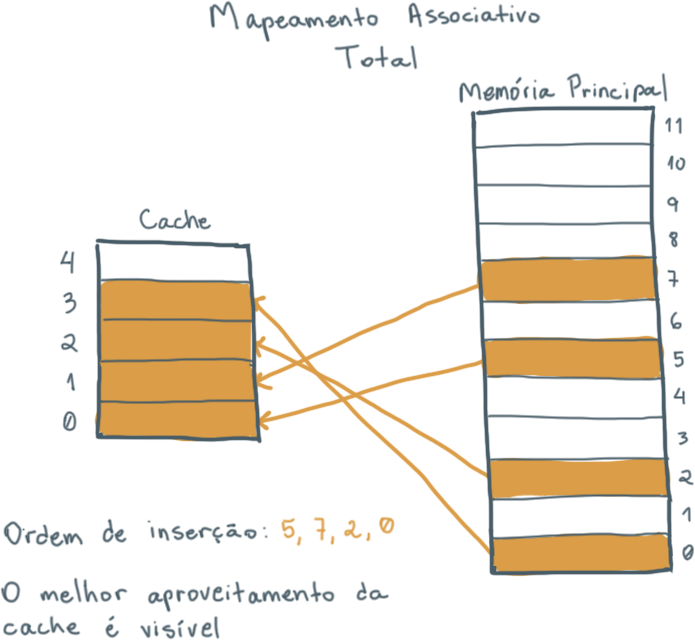 Mapeamento Associativo
Total
Memória Principal
11
10
9
8
7
6
5
4
3
2
1
0
Cache
4
3
2
1
0
Ordem de inserção: 5, 7, 2, 0
O melhor aproveitamento da
cache é visível